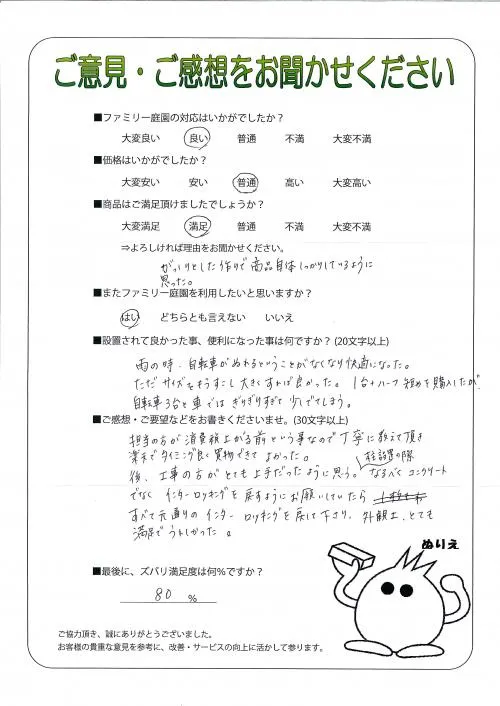 ご意見・ご感想をお聞かせください
■ファミリー庭園の対応はいかがでしたか？
大変良い 良い 普通 不満 大変不満
■価格はいかがでしたか？
大変安い 安い 普通 高い 大変高い
■商品はご満足頂けましたでしょうか？
大変満足 満足 普通 不満 大変不満
⇒よろしければ理由をお聞かせください。
がっしりとした作りで商品自体しっかりしているように
思った。
■またファミリー庭園を利用したいと思いますか？
はい どちらとも言えない いいえ
■設置されて良かった事、便利になった事は何ですか？(20文字以上)
雨の時、自転車がぬれるということがなくなり快適になった。
ただサイズをもうすこし大きくすれば良かった。 1台+ハーフ 短めを購入したが
自転車3台と車ではぎりぎりすぎて少しでてしまう。
■ご感想・ご要望などをお書きくださいませ。(30文字以上)
担当の方が消費税上がる前という事なので丁寧に教えて頂き
楽天でタイミング良く買物できてよかった。
柱設置の際
後、工事の方がとても上手だったように思う。 なるべくコンクリート
でなくインターロッキングを戻すようにお願いしていたら
すべて元通りのインターロッキングを戻して下さり、外観上、とても
満足でうれしかった。
ぬりえ
■最後に、ズバリ満足度は何%ですか？
80 %
ご協力頂き、誠にありがとうございました。
お客様の貴重な意見を参考に、改善・サービスの向上に活かして参ります。